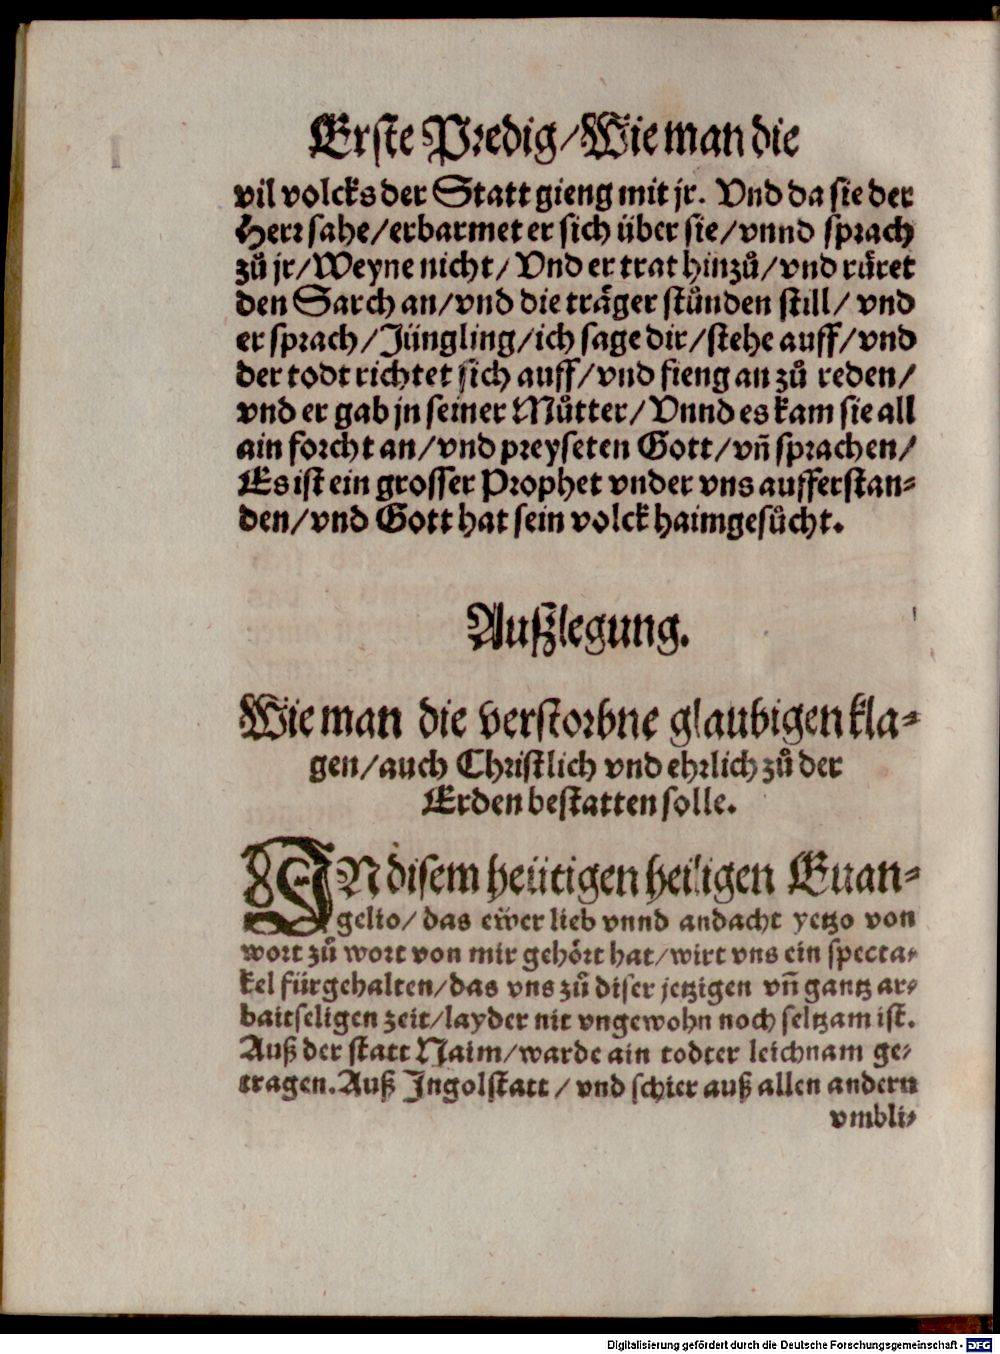 Erste Predig/Wie man die
vil volcks der Statt gieng mit jr. Vnd da sie der
Herr sahe/erbarmet er sich über sie/vnnd sprach
zů jr/Weyne nicht/Vnd er trat hinzů/vnd rüret
den Sarch an/vnd die träger stůnden still/ vnd
er sprach/Jüngling/ich sage dir/stehe auff/vnd
der todt richtet sich auff/vnd fieng an zů reden/
vnd er gab jn seiner Můtter/Vnnd es kam sie all
ain forcht an/vnd preyseten Gott/vn̄ sprachen/
Es ist ein grosser Prophet vnder vns aufferstan-
den/vnd Gott hat sein volck haimgesůcht.
Außlegung.
Wie man die verstorbne glaubigen kla-
gen/auch Christlich vnd ehrlich zů der
Erden bestatten solle.
IN disem heütigen heiligen Euan-
gelio/das ewer lieb vnnd andacht yetzo von
wort zů wort von mir gehört hat/wirt vns ein specta-
kel fürgehalten/das vns zů diser jetzigen vn̄ gantz ar-
baitseligen zeit/layder nit vngewohn noch seltzam ist.
Auß der statt Naim/warde ain todter leichnam ge-
tragen. Auß Ingolstatt/vnd schier auß allen andern
vmbli-
Digitalisierung gefördert durch die Deutsche Forschungsgemeinschaft - DFG